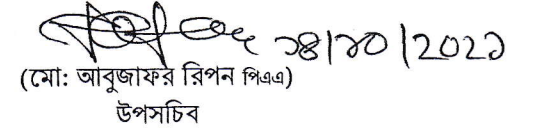 ১৪/১০/2021
(মো: আবুজাফর রিপন পিএএ)
উপসচিব